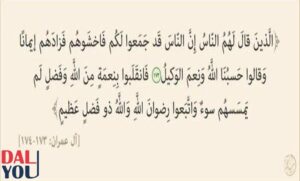 ﴿الَّذِينَ قَالَ لَهُمُ النَّاسُ إِنَّ النَّاسَ قَدْ جَمَعُوا لَكُمْ فَاخْشَوْهُمْ فَزَادَهُمْ إِيمَانًا
وَقَالُوا حَسْبُنَا اللَّهُ وَنِعْمَ الْوَكِيلُ ۝١٧٣ فَانقَلَبُوا بِنِعْمَةٍ مِنَ اللَّهِ وَفَضْلٍ لَمْ
يَمْسَسْهُمْ سُوءٌ وَاتَّبَعُوا رِضْوَانَ اللَّهِ وَاللَّهُ ذُو فَضْلٍ عَظِيمٍ﴾
[آل عمران: ١٧٣-١٧٤]
DAL
YOU